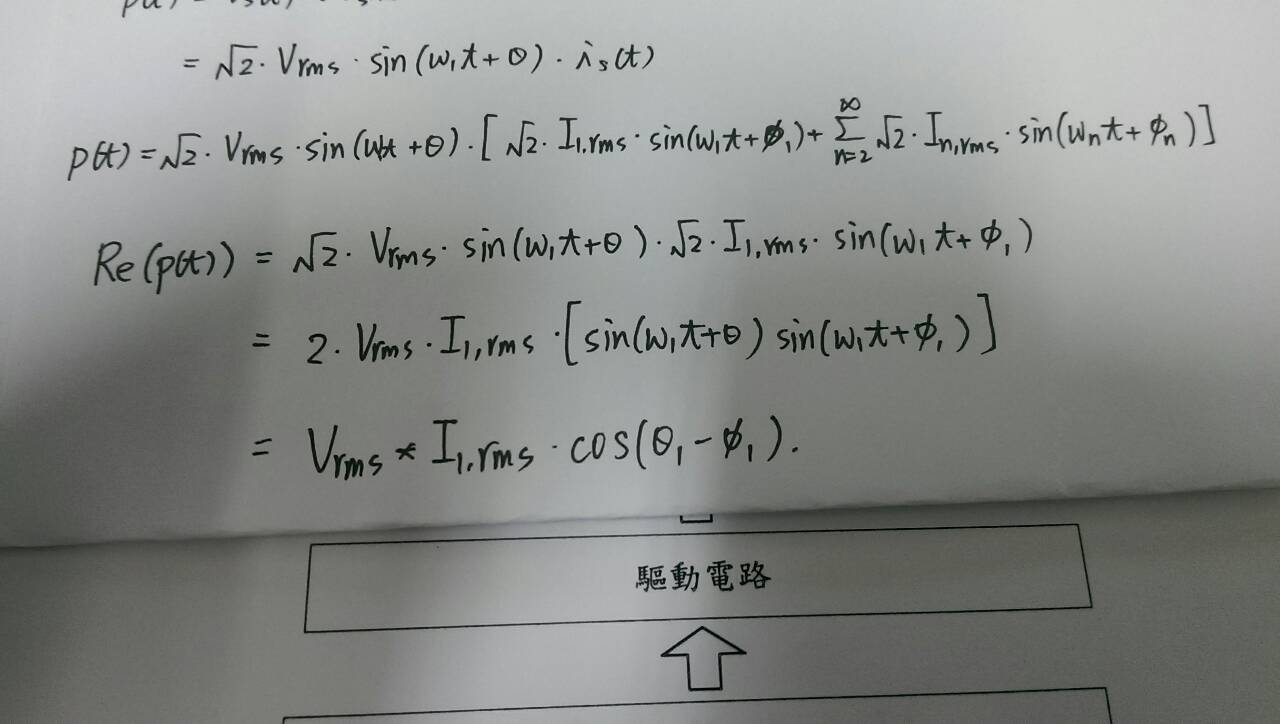 = √2 · Vrms · sin(ω₁t+θ) · iₛ(t)
p(t) = √2 · Vrms · sin(ωt+θ) · [√2 · I₁,rms · sin(ω₁t+ϕ₁) + ∑ₙ₌₂^∞ √2 · Iₙ,rms · sin(ωₙt+ϕₙ)]
Re(p(t)) = √2 · Vrms · sin(ω₁t+θ) · √2 · I₁,rms · sin(ω₁t+ϕ₁)
= 2 · Vrms · I₁,rms · [sin(ω₁t+θ) sin(ω₁t+ϕ₁)]
= Vrms * I₁,rms · cos(θ₁-ϕ₁).
驅動電路